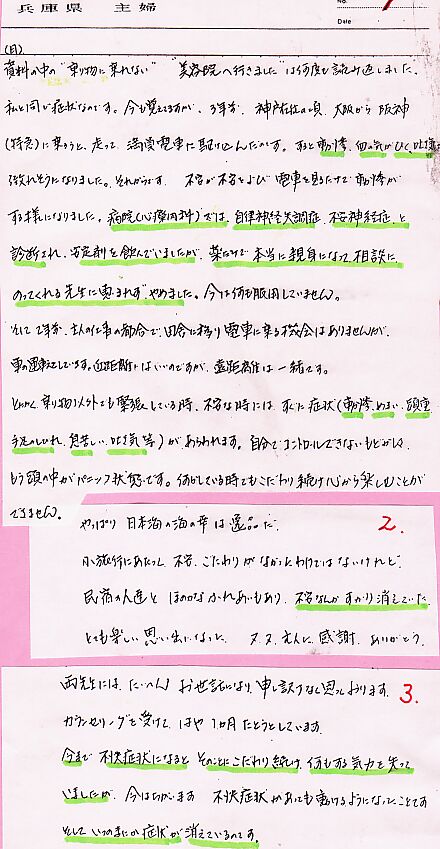 兵庫県 主婦
No.
Date
(目)
資料の中の"乗り物に乗れない" "美容院へ行きました"は何度も読み返しました。
私と同じ症状なのです。今も覚えてますが、3年前、神戸在住の頃、大阪から阪神
(特急)に乗ろうと、走って満員電車に駆け込んだのです。すると動悸、血の気がひく、吐気
倒れそうになりました。それからです。不安が不安をよび電車を見るだけで動悸が
する様になりました。病院(心療内科)では、自律神経失調症、不安神経症、と
診断され、安定剤を飲んでいましたが、薬だけで本当に親身になって相談に
のってくれる先生に恵まれずやめました。今は何も服用していません。
そして2年前、主人の仕事の都合で、田舎に移り電車に乗る機会はありませんが、
車の運転をしています。近距離はいいのですが、遠距離は一緒です。
とにかく、乗り物以外でも緊張している時、不安な時には、すぐに症状(動悸、めまい、頭重
手足のしびれ、息苦しい、吐気等)があらわれます。自分でコントロールできないもどかしさ、
もう頭の中がパニック状態です。何かしている時でもこだわり続け心から楽しむことが
できません。
2.
やっぱり日本海の海の幸は逸品だ。
小旅行にあたって不安、こだわりがなかったわけではないけれど、
民宿の人達とほのかなふれあいもあり、不安なんかすっかり消えていた
とても楽しい思い出になった。又々、主人に感謝、ありがとう。
3.
両先生には、たいへんお世話になり、申し訳なく思っております。
カウンセリングを受けて、はや1ヵ月たとうとしています。
今まで不快症状になるとそのことにこだわり続け、何もする気力を失って
いましたが、今はちがいます 不快症状があっても動けるようになったことです
そしていつのまにか症状が消えているのです。